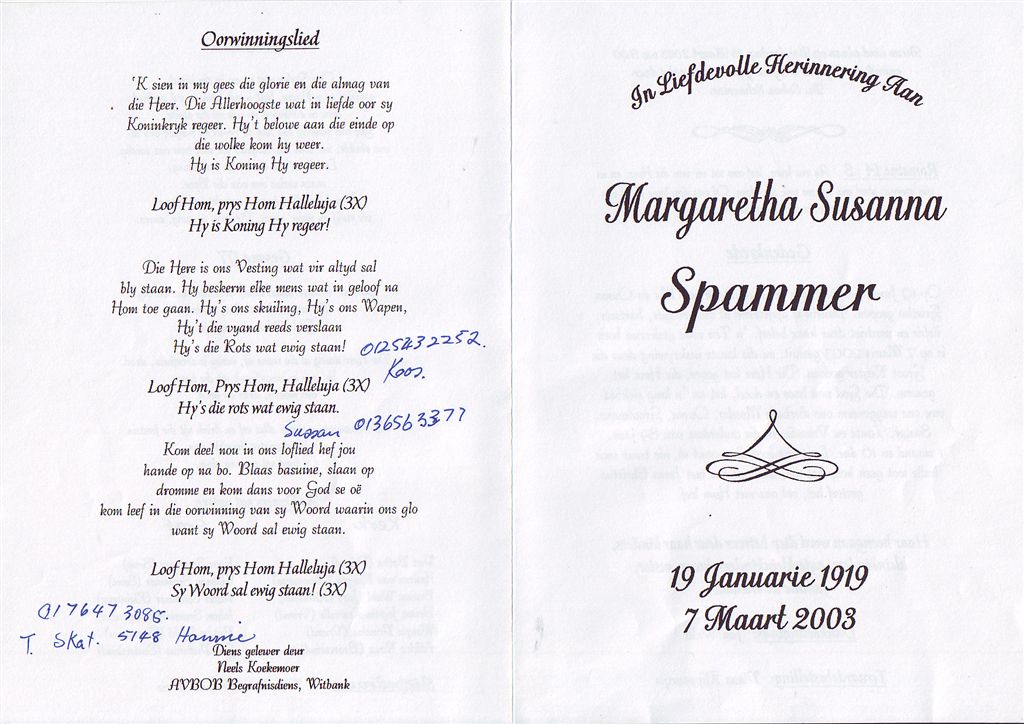 Oorwinningslied
'K sien in my gees die glorie en die almag van
die Heer. Die Allerhoogste wat in liefde oor sy
Koninkryk regeer. Hy't belowe aan die einde op
die wolke kom hy weer.
Hy is Koning Hy regeer.
Loof Hom, prys Hom Halleluja (3X)
Hy is Koning Hy regeer!
Die Here is ons Vesting wat vir altyd sal
bly staan. Hy beskerm elke mens wat in geloof na
Hom toe gaan. Hy's ons skuiling, Hy's ons Wapen,
Hy't die vyand reeds verslaan
Hy's die Rots wat ewig staan! 0125432252.
Koos.
Loof Hom, Prys Hom, Halleluja (3X)
Hy's die rots wat ewig staan.
Sussan 0136563377
Kom deel nou in ons loflied hef jou
hande op na bo. Blaas basuine, slaan op
dromme en kom dans voor God se oë
kom leef in die oorwinning van sy Woord waarin ons glo
want sy Woord sal ewig staan.
Loof Hom, prys Hom Halleluja (3X)
Sy Woord sal ewig staan! (3X)
0176473085.
T. Skat. 5148 Hannie
Diens gelewer deur
Neels Koekemoer
AVBOB Begrafnisdiens, Witbank
In Liefdevolle Herinnering Aan
Margaretha Susanna
Spammer
19 Januarie 1919
7 Maart 2003